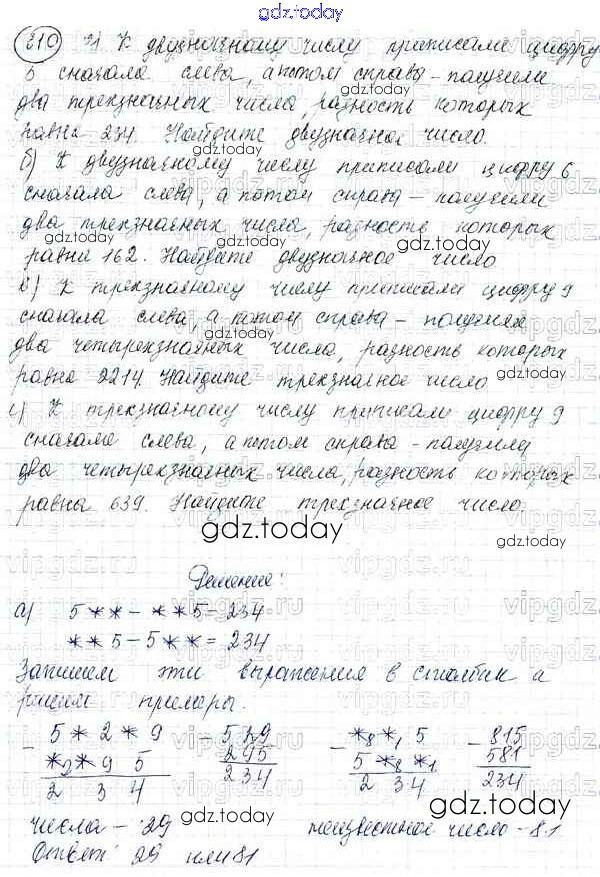 gdz.today
310 а) К двузначному числу приписали цифру
5 сначала слева, а потом справа - получили
два трехзначных числа, разность которых
равна 234. Найдите двузначное число.
gdz.today
б) К двузначному числу приписали цифру 6
сначала слева, а потом справа - получили
два трехзначных числа, разность которых
gdz.today
равна 162. Найдите двузначное число
в) К трехзначному числу приписали цифру 9
сначала слева, а потом справа - получили
gdz.today
два четырехзначных числа, разность которых
равна 2214. Найдите трехзначное число
gdz.today
г) К трехзначному числу приписали цифру 9
сначала слева, а потом справа - получили
два четырехзначных числа, разность которых
равна 639. Найдите трехзначное число.
gdz.today
Решение:
а) 5** - **5 = 234
**5 - 5** = 234
Запишем эти выражения в столбик и
решим примеры.
gdz.today
- 5*2*9 - 529 - *8*1 5 - 815
*2*9 5 295 5*8*1 581
2 3 4 234 2 3 4 234
gdz.today
числа - 29 неизвестное число - 81
Ответ: 29 или 81
gdz.today